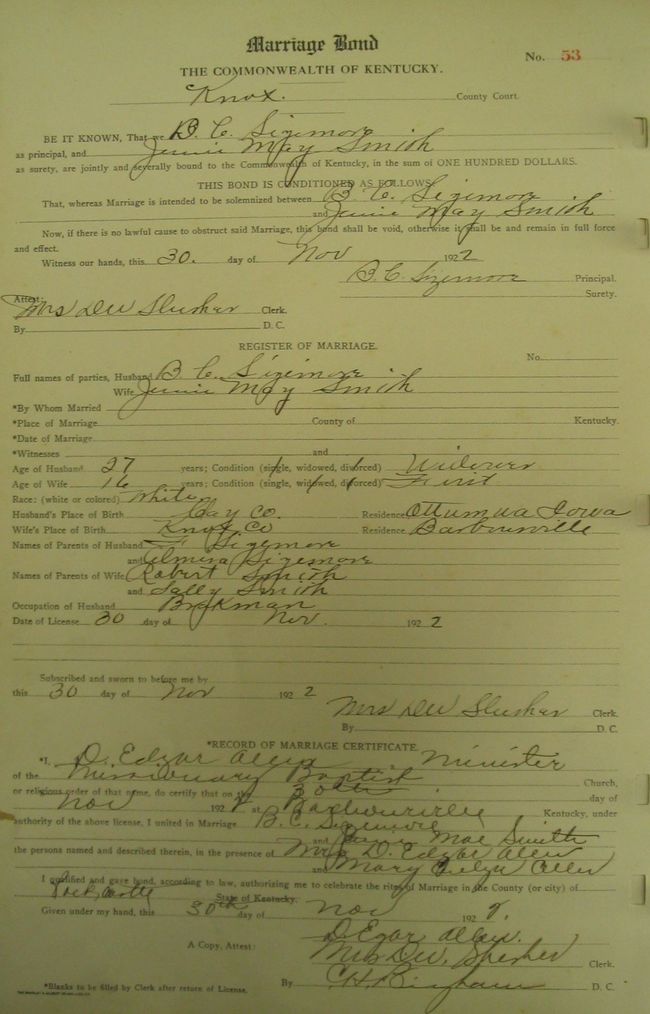 Marriage Bond
No. 53
THE COMMONWEALTH OF KENTUCKY.
Knox. County Court.
BE IT KNOWN, That we B. C. Sizemore
as principal, and Jennie May Smith
as surety, are jointly and severally bound to the Commonwealth of Kentucky, in the sum of ONE HUNDRED DOLLARS.
THIS BOND IS CONDITIONED AS FOLLOWS
That, whereas Marriage is intended to be solemnized between B. C. Sizemore
and Jennie May Smith
Now, if there is no lawful cause to obstruct said Marriage, this bond shall be void, otherwise it shall be and remain in full force
and effect.
Witness our hands, this 30. day of Nov 1922
B. C. Sizemore Principal.
Surety.
Attest: Mrs DW Slusher Clerk.
By D. C.
REGISTER OF MARRIAGE.
No.
Full names of parties, Husband B. C. Sizemore
Wife Jennie May Smith
*By Whom Married
*Place of Marriage County of Kentucky.
*Date of Marriage
*Witnesses and
Age of Husband 27 years; Condition (single, widowed, divorced) Widower
Age of Wife 16 years; Condition (single, widowed, divorced) First
Race: (white or colored) White
Husband's Place of Birth Clay Co. Residence Ottumwa Iowa
Wife's Place of Birth Knox Co Residence Barbourville
Names of Parents of Husband Sizemore
and Elmira Sizemore
Names of Parents of Wife Robert Smith
and Sally Smith
Occupation of Husband Brakman
Date of License 30 day of Nov. 1922
Subscribed and sworn to before me by
this 30 day of Nov 1922
Mrs DW Slusher Clerk.
By D. C.
*RECORD OF MARRIAGE CERTIFICATE.
*I, D. Edgar Allen Minister
of the Missionary Baptist Church,
or religious order of that name, do certify that on the 30th day of
Nov 192 at Barbourville Kentucky, under
authority of the above license, I united in Marriage B. C. Sizemore
and Mae Smith
the persons named and described therein, in the presence of Mrs D. Edgar Allen
and Mary Allen
I qualified and gave bond, according to law, authorizing me to celebrate the rites of Marriage in the County (or city) of
Rock Castle State of Kentucky.
Given under my hand, this 30th day of Nov 192
D Egar Allen.
A Copy, Attest: Mrs DW. Slusher Clerk.
*Blanks to be filled by Clerk after return of License. By C. H. Bingham D. C.